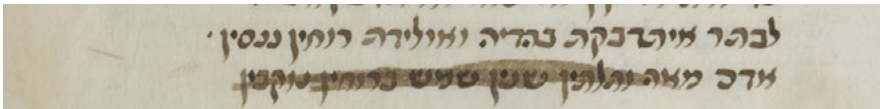 לבתר אתדבקת בהדיה ואולידת רוחין ונזקין
אדם מאה ותלתין שנין שמש ברוחין נוקבין